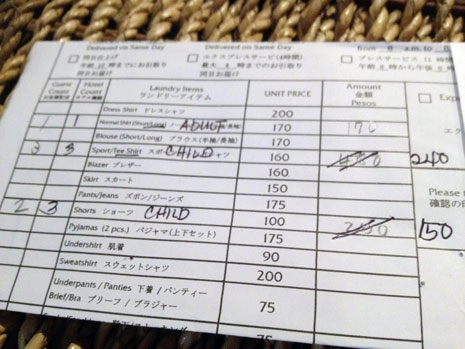 Delivered on Same Day Delivered on Same Day from 8 a.m. to
同日仕上げ エクスプレスサービス (4時間) プレスサービス (1
午前 時までにお引取り 最大 4 時までにお引取り 午前 8 時から午後
同日お届け 同日お届け
Guest Count Hotel Count Laundry Items ランドリーアイテム UNIT PRICE Amount 金額 Pesos Exp
Dress Shirt ドレスシャツ 200
1 1 Normal Shirt (Short/Long) ADULT 170 170
Blouse (Short/Long) ブラウス (半袖/長袖) 170
3 3 Sport/Tee Shirt スポ CHILD シャツ 160 240
Blazer ブレザー 160
Skirt スカート 150
Pants/Jeans ズボン/ジーンズ 175
2 3 Shorts ショーツ CHILD 100 150
Pyjamas (2 pcs.) パジャマ (上下セット) 175
Undershirt 肌着 90
Sweatshirt スウェットシャツ 200
Underpants / Panties 下着 / パンティー
Brief/Bra ブリーフ / ブラジャー 75
Please
確認の